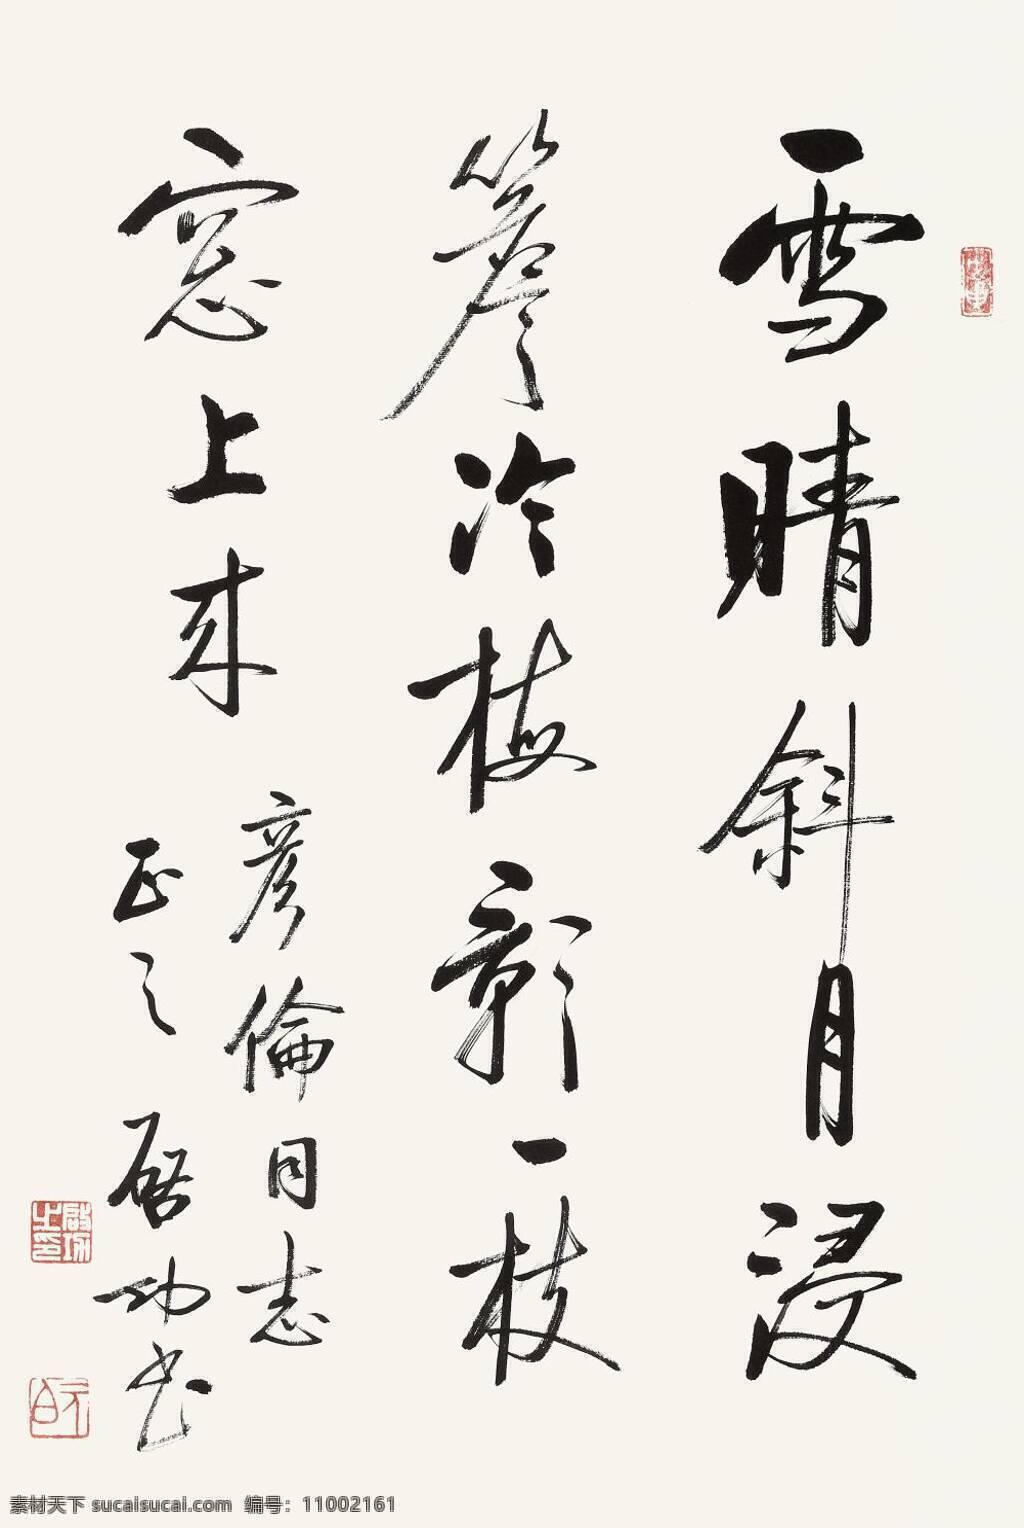 雪晴斜月浸
簷冷梅影一枝
窓上来
彦倫同志
正之 启功书
啟功之印
元白
素材天下 sucaisucai.com 编号：11002161